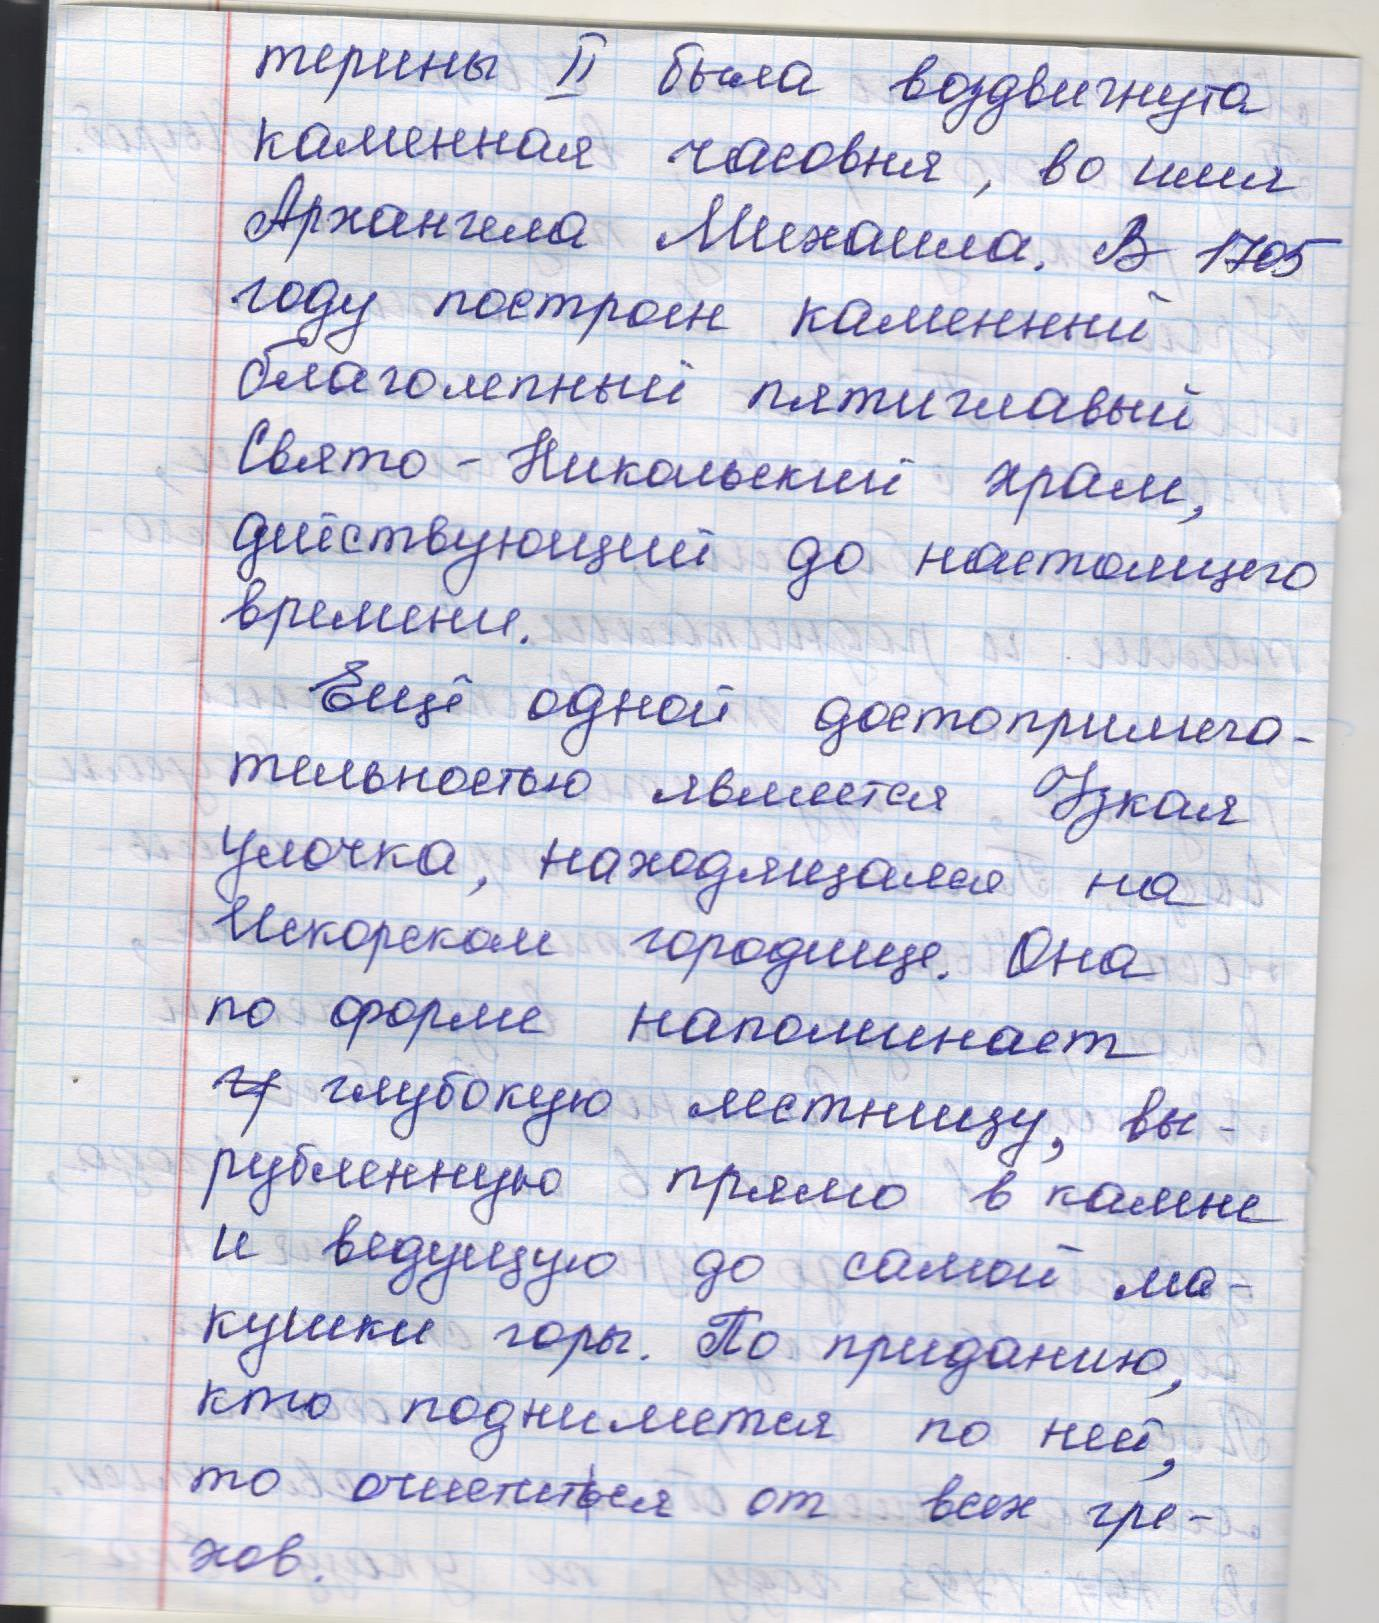 терины II была воздвигнута
каменная часовня, во имя
Архангела Михаила. В 1705
году построен каменный
благолепный пятиглавый
Свято - Никольский храм,
действующий до настоящего
времени.
Ещё одной достопримеча-
тельностью является Узкая
улочка, находящаяся на
Искорском городище. Она
по форме напоминает
глубокую лестницу, вы-
рубленную прямо в камне
и ведущую до самой ма-
кушки горы. По приданию,
кто поднимется по ней,
то очистится от всех гре-
хов.